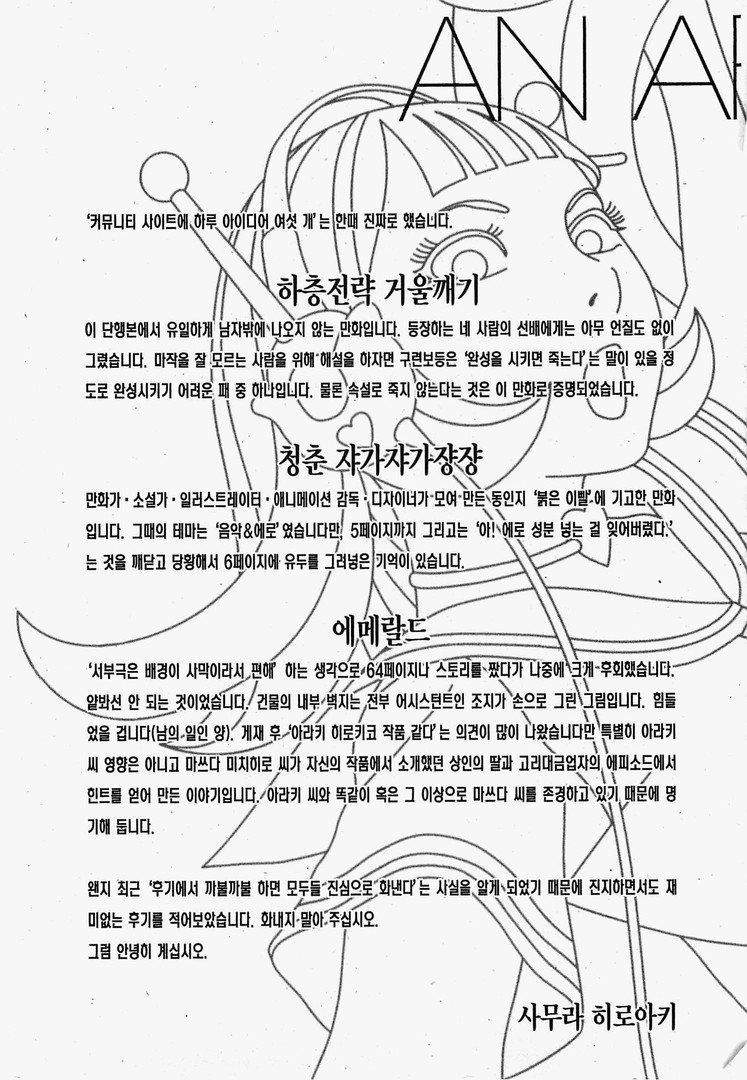 AN A
'커뮤니티 사이트에 하루 아이디어 여섯 개'는 한때 진짜로 했습니다.
하층전략 거울깨기
이 단행본에서 유일하게 남자밖에 나오지 않는 만화입니다. 등장하는 네 사람의 선배에게는 아무 언질도 없이
그렸습니다. 마작을 잘 모르는 사람을 위해 해설을 하자면 구련보등은 '완성을 시키면 죽는다'는 말이 있을 정
도로 완성시키기 어려운 패 중 하나입니다. 물론 속설로 죽지 않는다는 것은 이 만화로 증명되었습니다.
청춘 쟈가쟈가쟝쟝
만화가·소설가·일러스트레이터·애니메이션 감독·디자이너가 모여 만든 동인지 '붉은 이빨'에 기고한 만화
입니다. 그때의 테마는 '음악&에로'였습니다만, 5페이지까지 그리고는 '아! 에로 성분 넣는 걸 잊어버렸다.'
는 것을 깨닫고 당황해서 6페이지에 유두를 그려넣은 기억이 있습니다.
에메랄드
'서부극은 배경이 사막이라서 편해' 하는 생각으로 64페이지나 스토리를 짰다가 나중에 크게 후회했습니다.
얕봐선 안 되는 것이었습니다. 건물의 내부 벽지는 전부 어시스턴트인 조지가 손으로 그린 그림입니다. 힘들
었을 겁니다(남의 일인 양). 게재 후 '아라키 히로키코 작품 같다'는 의견이 많이 나왔습니다만 특별히 아라키
씨 영향은 아니고 마쓰다 미치히로 씨가 자신의 작품에서 소개했던 상인의 딸과 고리대금업자의 에피소드에서
힌트를 얻어 만든 이야기입니다. 아라키 씨와 똑같이 혹은 그 이상으로 마쓰다 씨를 존경하고 있기 때문에 명
기해 둡니다.
왠지 최근 '후기에서 까불까불 하면 모두들 진심으로 화낸다'는 사실을 알게 되었기 때문에 진지하면서도 재
미없는 후기를 적어보았습니다. 화내지 말아 주십시오.
그럼 안녕히 계십시오.
사무라 히로아키